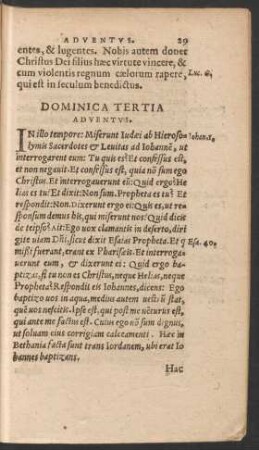 ADVENTVS. 29
entes, & lugentes. Nobis autem donet
Christus Dei filius hæc virtute vincere, &
cum violentis regnum cælorum rapere, Luc. 6,
qui est in seculum benedictus.
DOMINICA TERTIA
ADVENTVS.
IN illo tempore: Miserunt Iudæi ab Hieroso= Iohan. 1,
lymis Sacerdotes & Leuitas ad Iohannē, ut
interrogarent eum: Tu quis es? Et confessus est,
et non negauit. Et confessus est, quia nō sum ego
Christus. Et interrogauerunt eū: Quid ergo? He
lias es tu? Et dixit: Non sum. Propheta es tu? Et
respondit: Non. Dixerunt ergo ei: Quis es, ut re-
sponsum demus his, qui miserunt nos? Quid dicis
de teipso? Ait: Ego uox clamantis in deserto, diri
gite uiam Dñi, sicut dixit Esaias Propheta. Et q Esa. 40,
missi fuerant, erant ex Pharisæis. Et interroga-
uerunt eum, & dixerunt ei: Quid ergo ba-
ptizas, si tu non es Christus, neque Helias, neque
Propheta? Respondit eis Iohannes, dicens: Ego
baptizo uos in aqua, medius autem uestrū stat,
quē uos nescitis. Ipse est, qui post me uēturus est,
qui ante me factus est. Cuius ego nō sum dignus,
ut soluam eius corrigiam calceamenti. Hæc in
Bethania facta sunt trans Iordanem, ubi erat Io
hannes baptizans.
Hæc